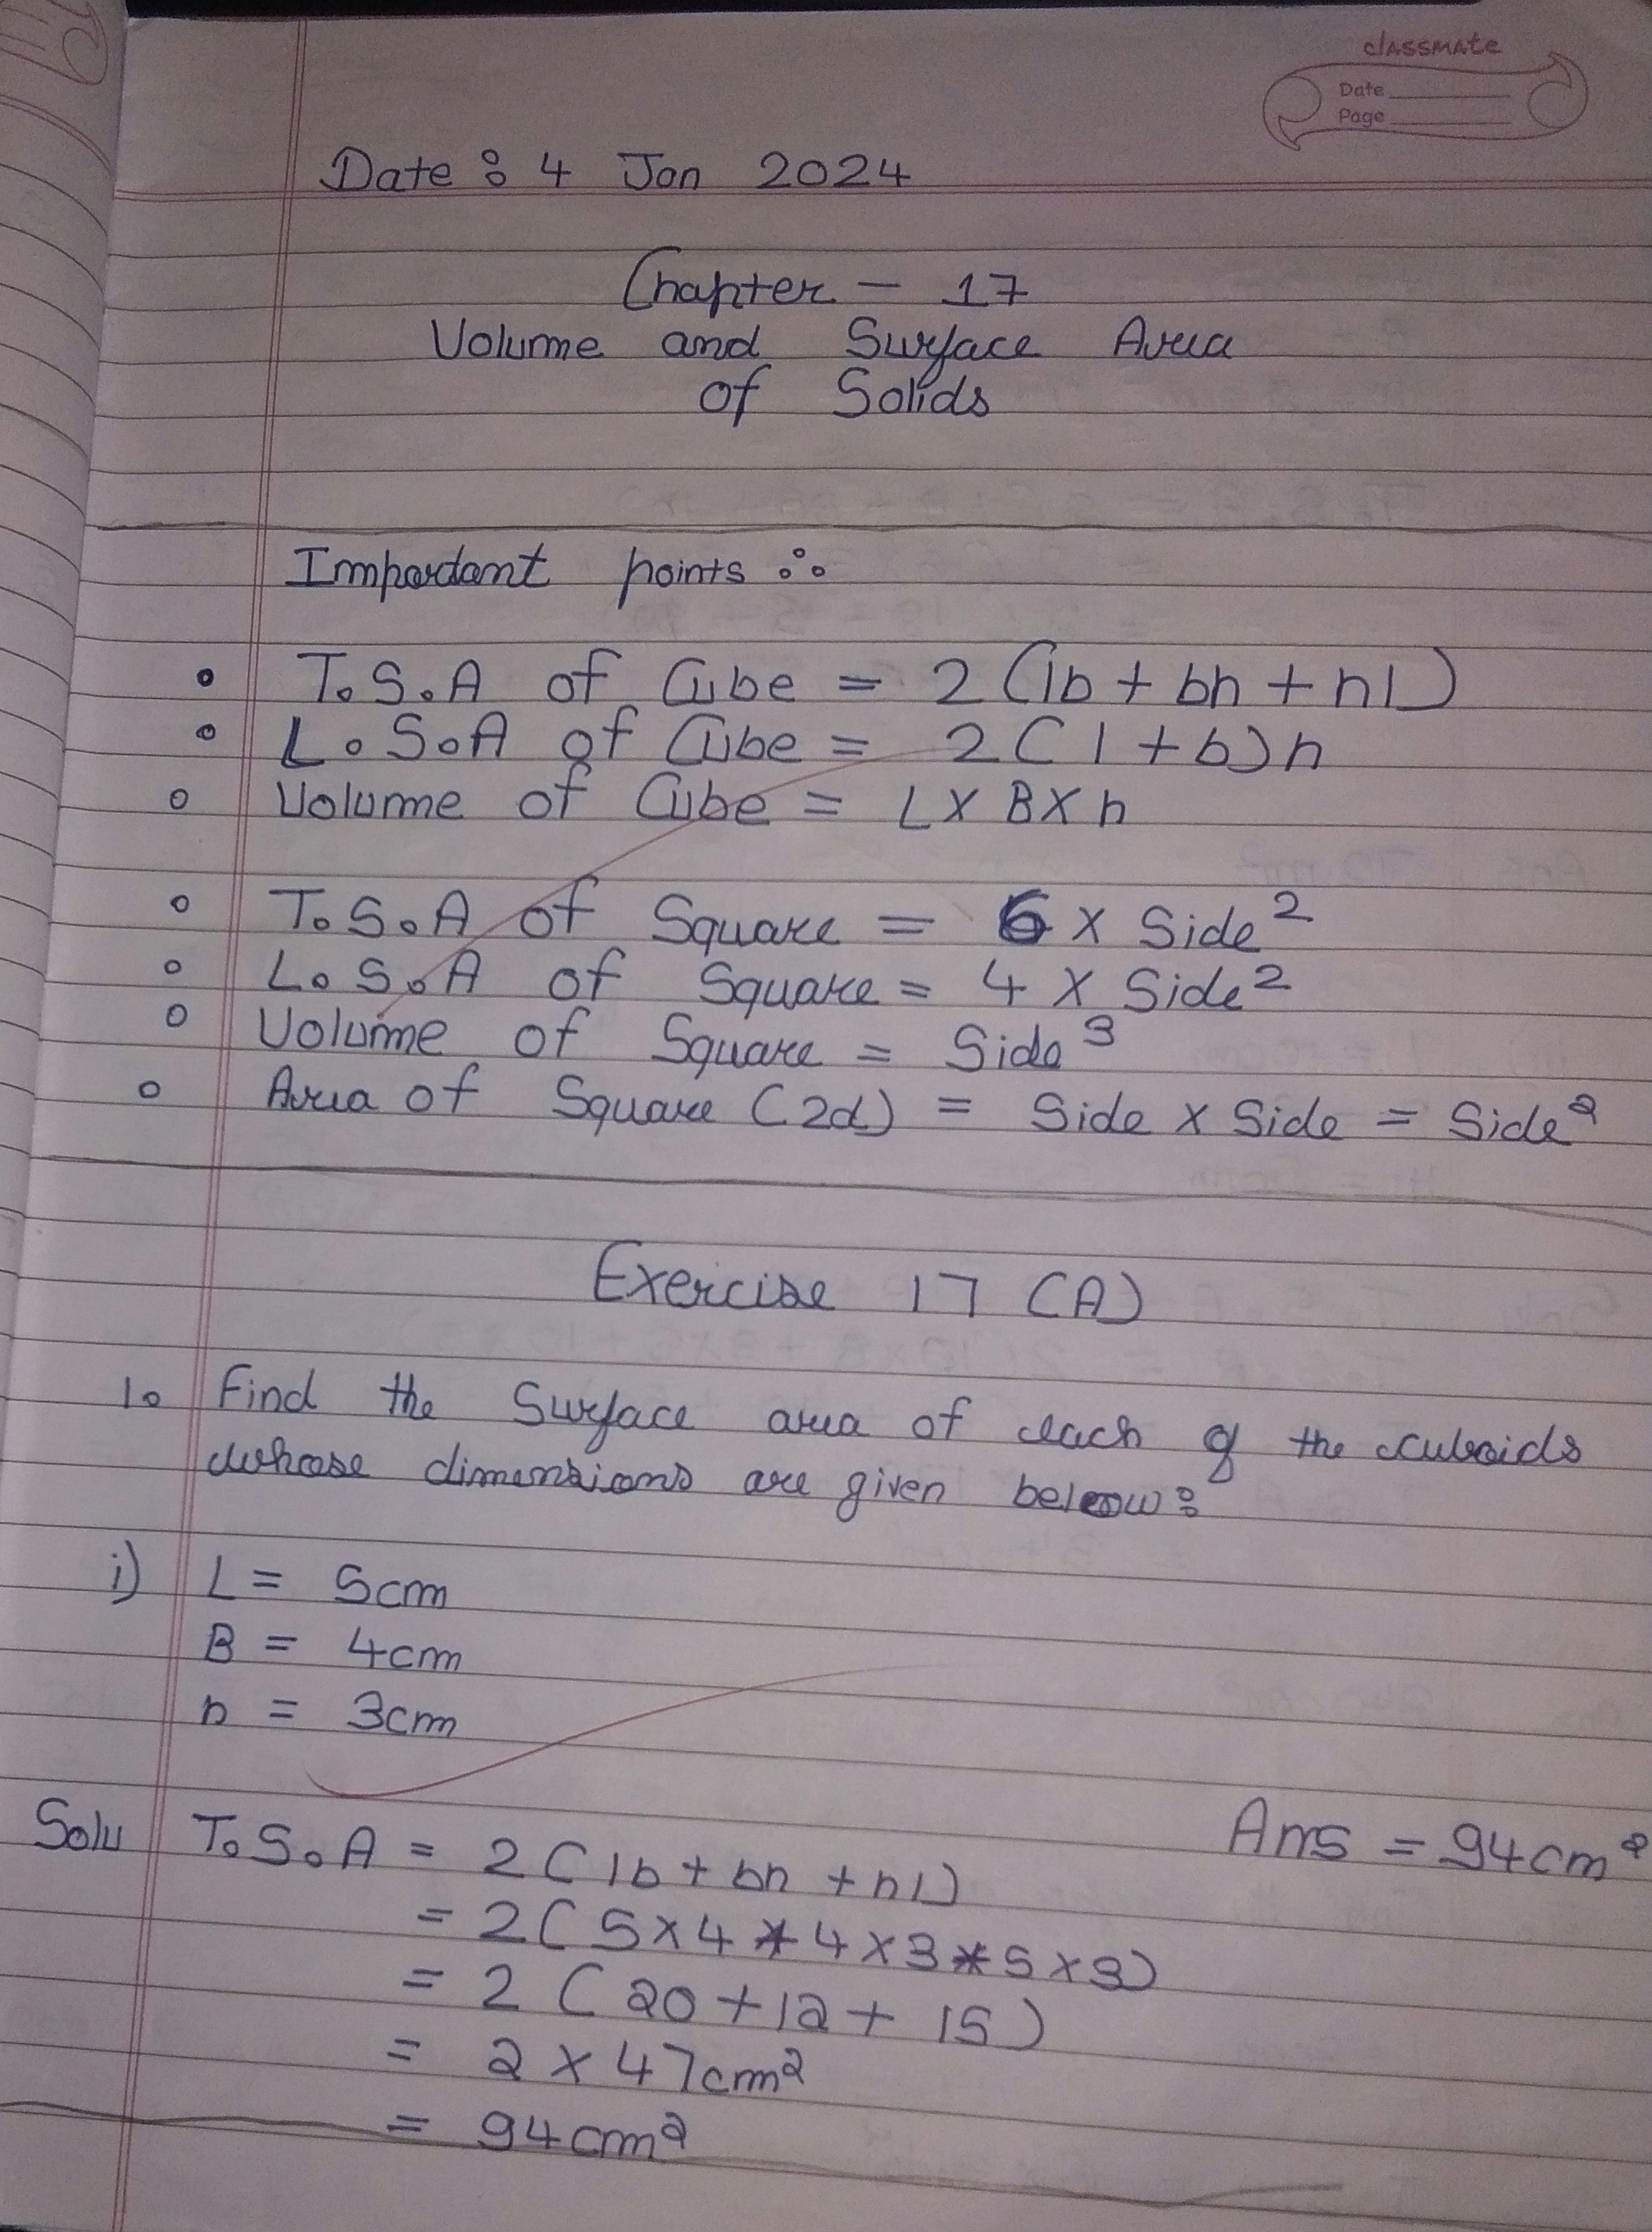 classmate
Date
Page
Date : 4 Jan 2024
Chapter - 17
Volume and Surface Area
of Solids
Impordant points :
• T.S.A of Cube = 2(lb + bh + hl)
• L.S.A of Cube = 2(l + b)h
• Volume of Cube = L x B x h
• T.S.A of Square = 6 x Side²
• L.S.A of Square = 4 x Side²
• Volume of Square = Side³
• Area of Square (2d) = Side x Side = Side²
Exercise 17 (A)
1. Find the Surface area of each of the cuboids
whose dimensions are given below:
i) L = 5cm
B = 4cm
h = 3cm
Solu T.S.A = 2(lb + bh + hl) Ans = 94cm²
= 2(5x4 + 4x3 + 5x3)
= 2 (20 + 12 + 15)
= 2 x 47cm²
= 94cm²